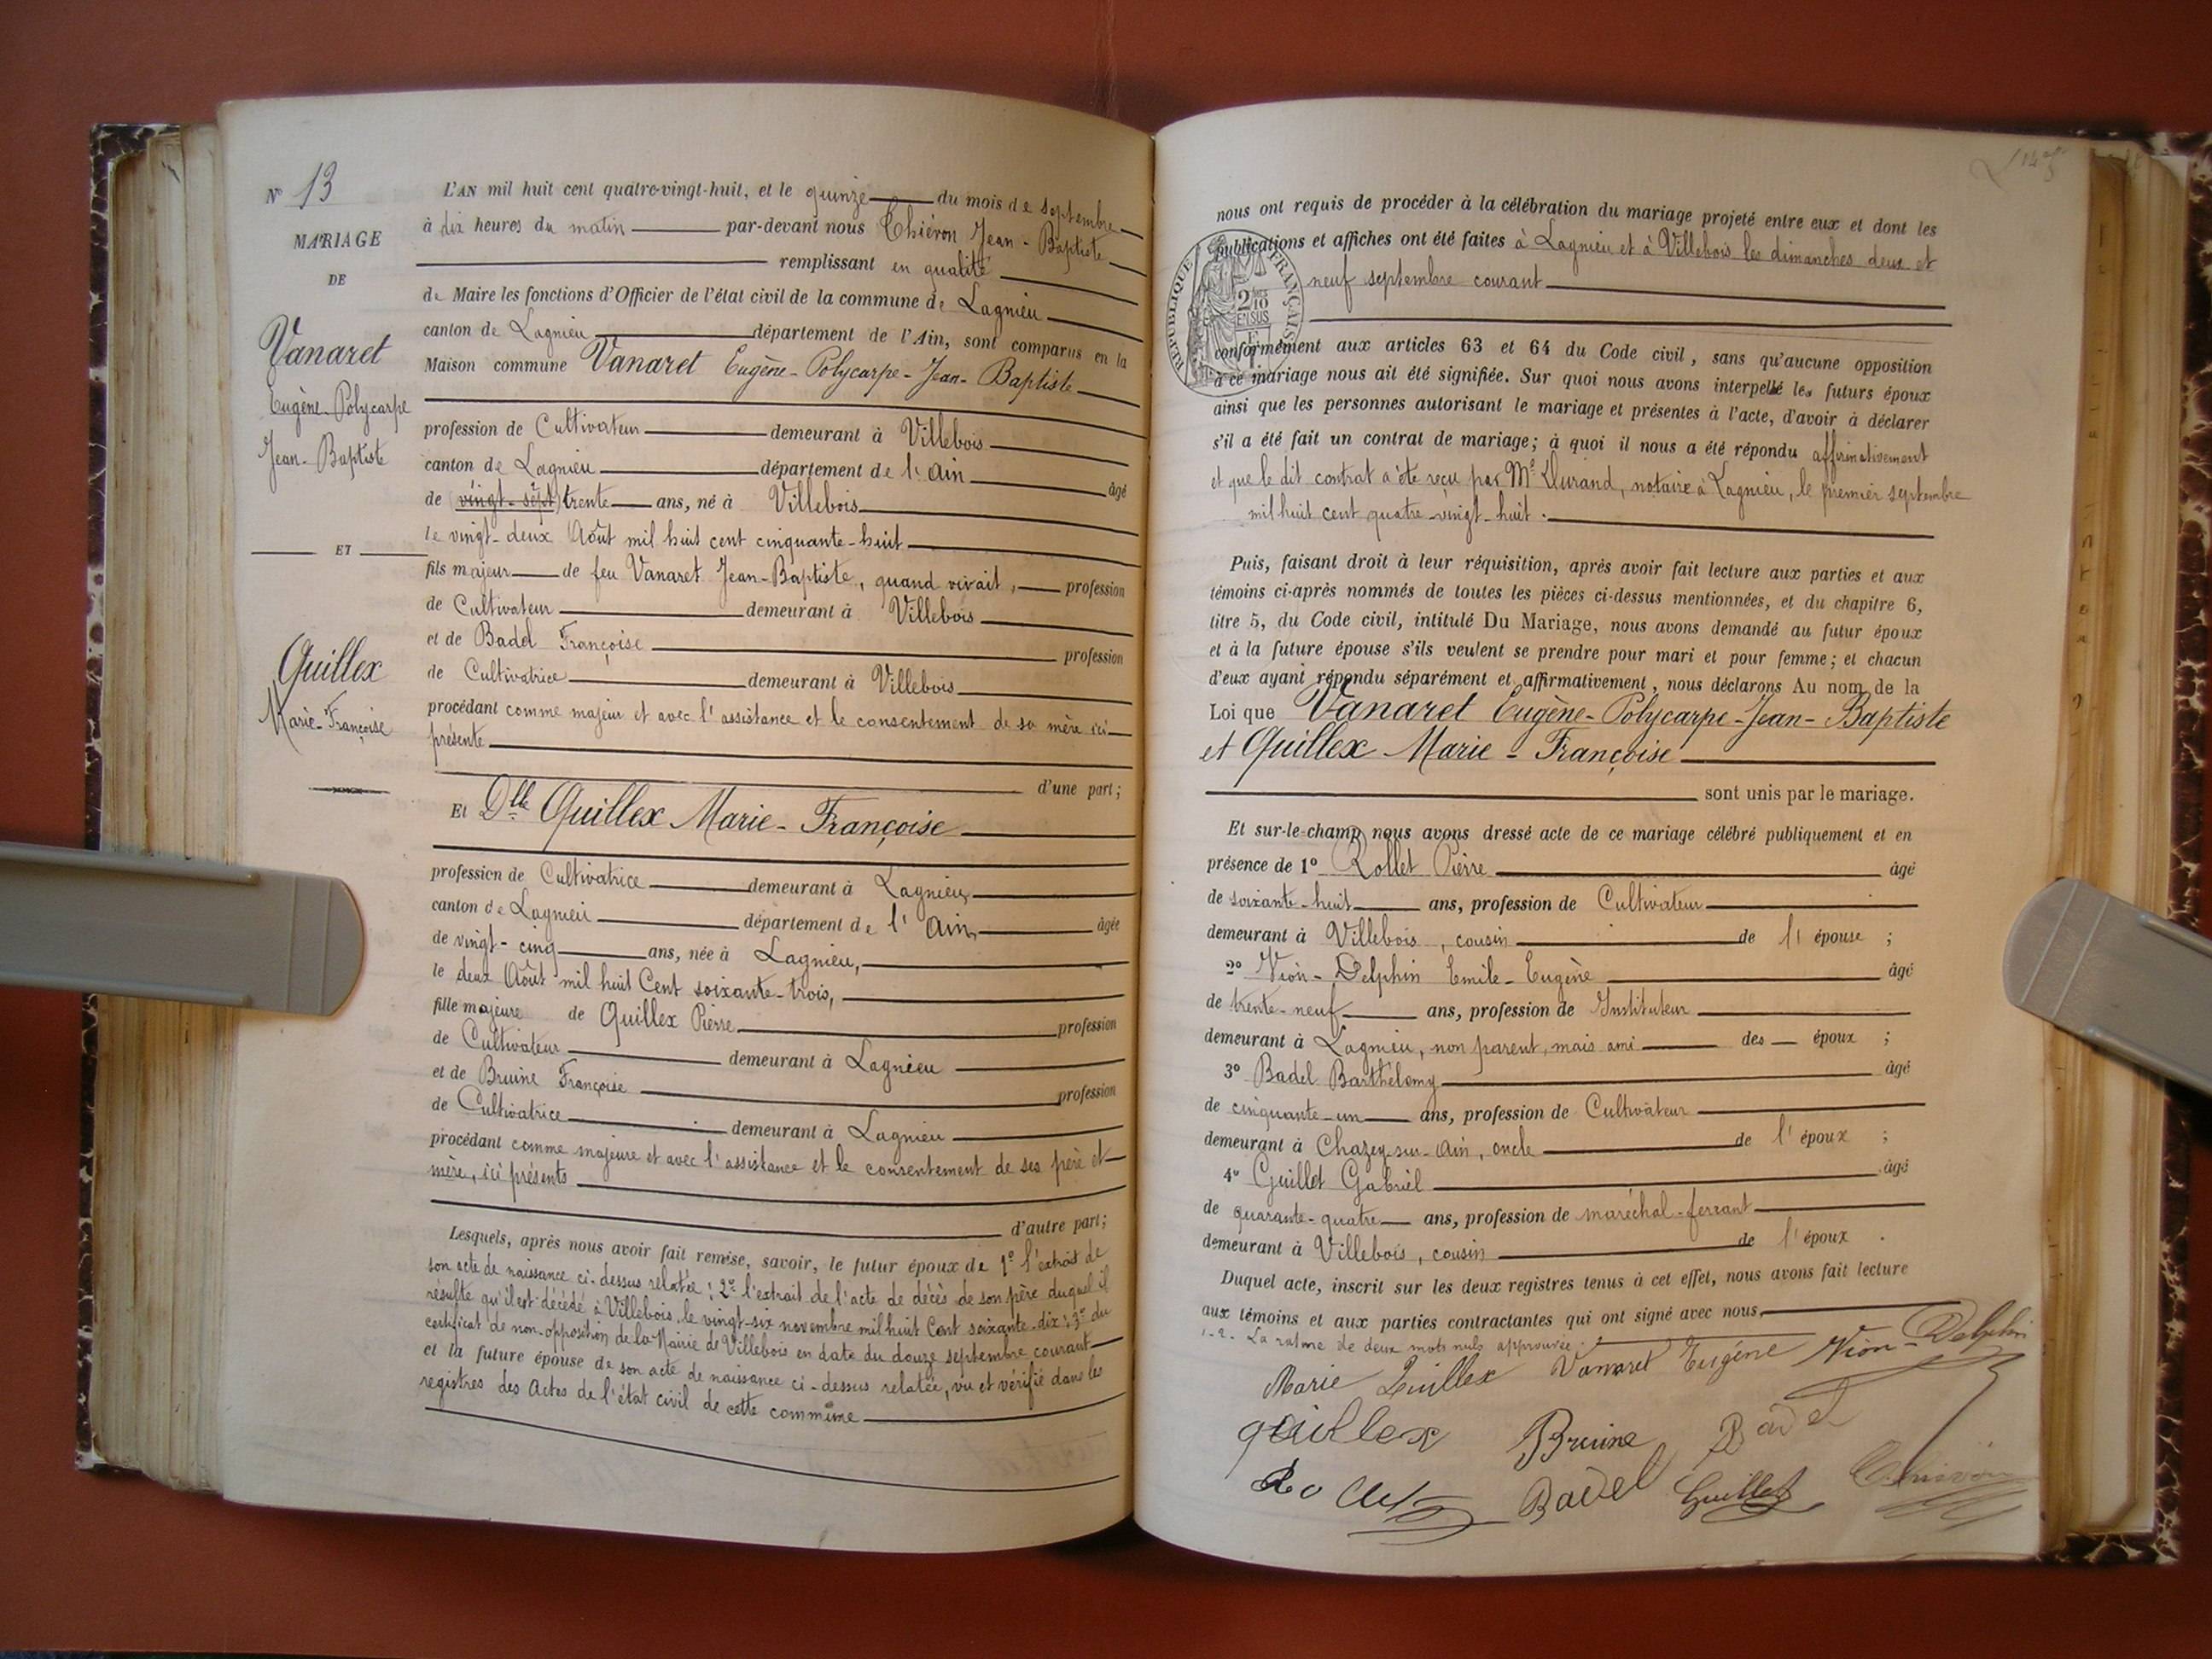 Nº 13
MARIAGE
DE
Vanaret
Eugène-Polycarpe
Jean-Baptiste
ET
Quillex
Marie-Françoise
L'AN mil huit cent quatre-vingt-huit, et le quinze du mois de septembre
à dix heures du matin par-devant nous Chiéron Jean-Baptiste
remplissant en qualité
de Maire les fonctions d'Officier de l'état civil de la commune de Lagnieu
canton de Lagnieu département de l'Ain, sont comparus en la
Maison commune Vanaret Eugène-Polycarpe-Jean-Baptiste
profession de Cultivateur demeurant à Villebois
canton de Lagnieu département de l'Ain âgé
de (vingt-sept) trente ans, né à Villebois
le vingt-deux Août mil huit cent cinquante-huit
fils majeur de feu Vanaret Jean-Baptiste, quand vivait, profession
de Cultivateur demeurant à Villebois
et de Badel Françoise profession
de Cultivatrice demeurant à Villebois
procédant comme majeur et avec l'assistance et le consentement de sa mère ici
présente
d'une part;
Et Dlle Quillex Marie-Françoise
profession de Cultivatrice demeurant à Lagnieu
canton de Lagnieu département de l'Ain, âgée
de vingt-cinq ans, née à Lagnieu,
le deux Août mil huit Cent soixante-trois,
fille majeure de Quillex Pierre profession
de Cultivateur demeurant à Lagnieu
et de Bruine Françoise profession
de Cultivatrice demeurant à Lagnieu
procédant comme majeure et avec l'assistance et le consentement de ses père et
mère, ici présents
d'autre part;
Lesquels, après nous avoir fait remise, savoir, le futur époux de 1º l'extrait de
son acte de naissance ci-dessus relatée; 2º l'extrait de l'acte de décès de son père duquel il
résulte qu'il est décédé à Villebois le vingt-six novembre mil huit Cent soixante-dix; 3º du
certificat de non-opposition de la Mairie de Villebois en date du douze septembre courant
et la future épouse de son acte de naissance ci-dessus relatée, vu et vérifié dans les
registres des Actes de l'état civil de cette commune
nous ont requis de procéder à la célébration du mariage projeté entre eux et dont les
publications et affiches ont été faites à Lagnieu et à Villebois les dimanches deux et
neuf septembre courant
RÉPUBLIQUE FRANÇAISE
2/10 EN SUS
conformément aux articles 63 et 64 du Code civil, sans qu'aucune opposition
à ce mariage nous ait été signifiée. Sur quoi nous avons interpellé les futurs époux
ainsi que les personnes autorisant le mariage et présentes à l'acte, d'avoir à déclarer
s'il a été fait un contrat de mariage; à quoi il nous a été répondu affirmativement
et que le dit contrat a été reçu par Me Durand, notaire à Lagnieu, le premier septembre
mil huit cent quatre-vingt-huit.
Puis, faisant droit à leur réquisition, après avoir fait lecture aux parties et aux
témoins ci-après nommés de toutes les pièces ci-dessus mentionnées, et du chapitre 6,
titre 5, du Code civil, intitulé Du Mariage, nous avons demandé au futur époux
et à la future épouse s'ils veulent se prendre pour mari et pour femme; et chacun
d'eux ayant répondu séparément et affirmativement, nous déclarons Au nom de la
Loi que Vanaret Eugène-Polycarpe-Jean-Baptiste
et Quillex Marie-Françoise
sont unis par le mariage.
Et sur-le-champ nous avons dressé acte de ce mariage célébré publiquement et en
présence de 1º Rollet Pierre âgé
de soixante-huit ans, profession de Cultivateur
demeurant à Villebois, cousin de l'épouse;
2º Vion-Delphin Emile-Eugène âgé
de trente-neuf ans, profession de Instituteur
demeurant à Lagnieu, non parent, mais ami des époux;
3º Badel Barthélemy âgé
de cinquante-un ans, profession de Cultivateur
demeurant à Chazey-sur-Ain, oncle de l'époux;
4º Guillet Gabriel âgé
de quarante-quatre ans, profession de maréchal-ferrant
demeurant à Villebois, cousin de l'époux.
Duquel acte, inscrit sur les deux registres tenus à cet effet, nous avons fait lecture
aux témoins et aux parties contractantes qui ont signé avec nous
1-2. La rature de deux mots nuls approuvée.
Marie Quillex Vanaret Eugène Vion-Delphin
quillex Bruine Badel
Rollet Badel Guillet Chiéron